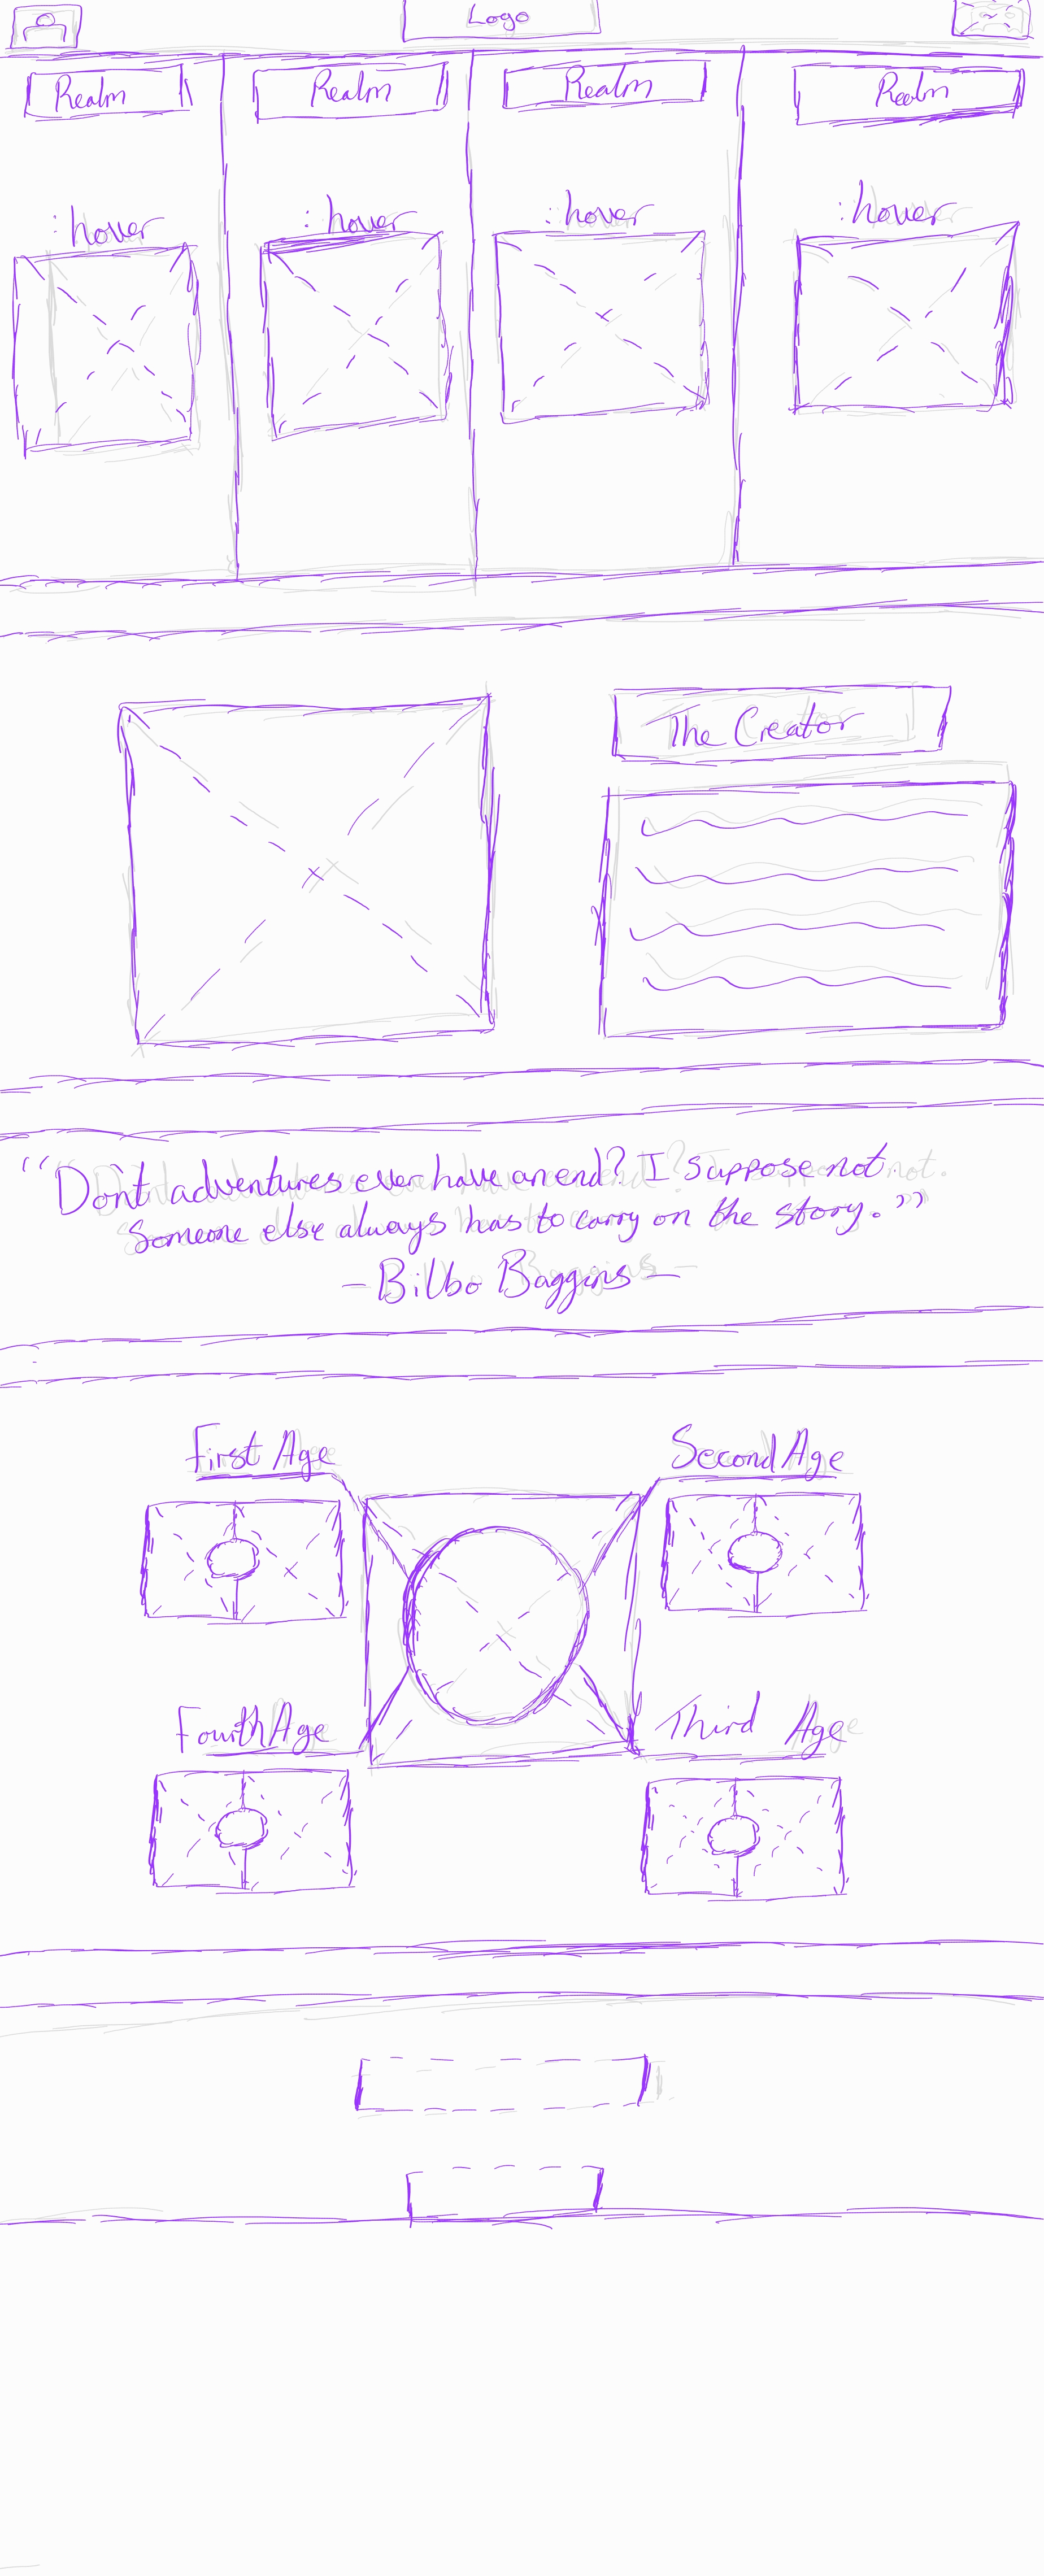 Logo
Realm Realm Realm Realm
:hover :hover :hover :hover
The Creator
"Don't adventures ever have an end? I suppose not.
Someone else always has to carry on the story."
- Bilbo Baggins -
First Age Second Age
Fourth Age Third Age